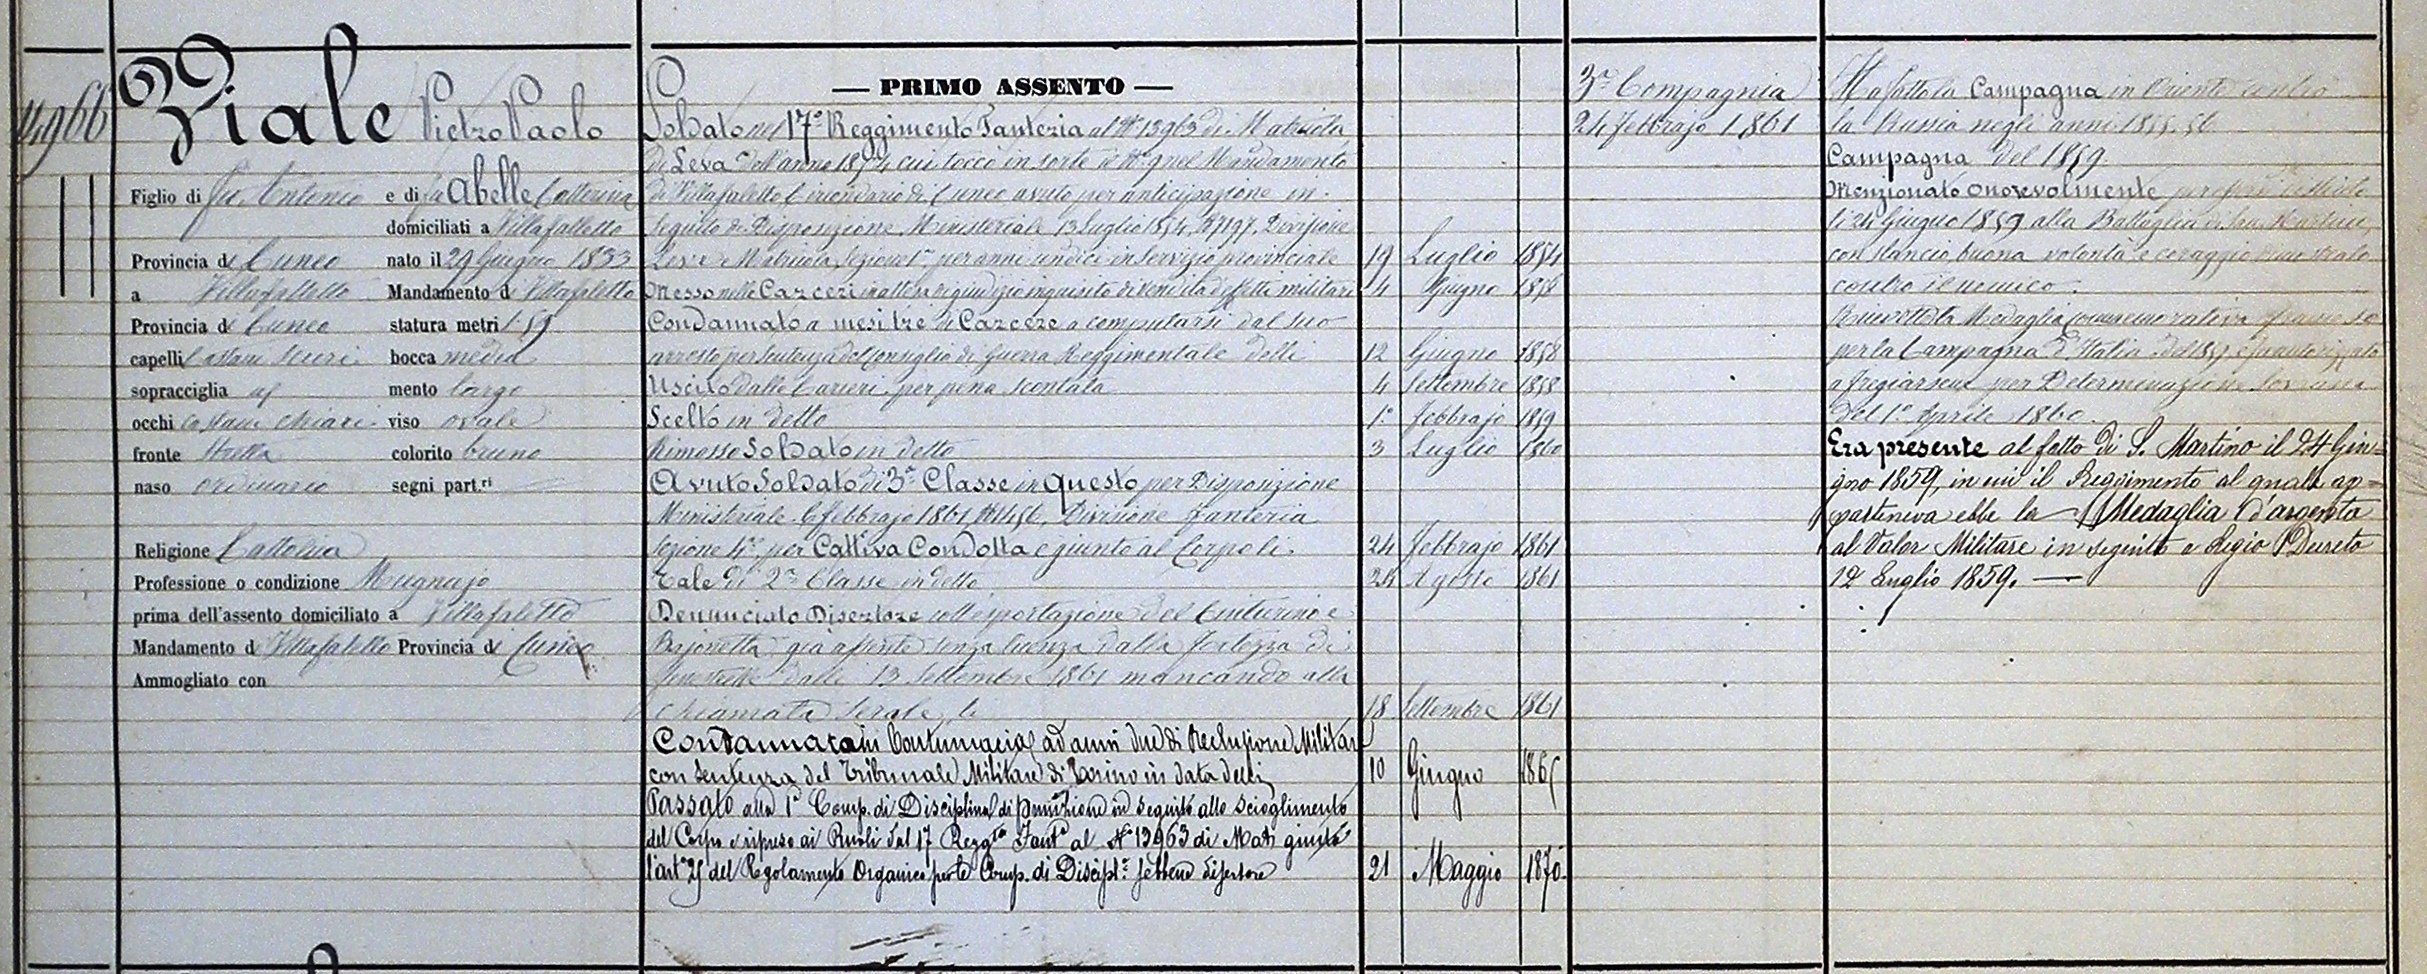 14966
Viale Pietro Paolo
Figlio di fu Antonio e di fu Abelle Catterina
domiciliati a Villafalletto
Provincia di Cuneo nato il 29 Giugno 1833
a Villafalletto Mandamento di Villafaletto
Provincia di Cuneo statura metri 1.59
capelli Castani scuri bocca media
sopracciglia id mento largo
occhi castani chiari viso ovale
fronte stretta colorito bruno
naso ordinario segni part.ri
Religione Cattolica
Professione o condizione Mugnajo
prima dell'assento domiciliato a Villafaletto
Mandamento di Villafaletto Provincia di Cuneo
Ammogliato con
— PRIMO ASSENTO —
Soldato nel 17° Reggimento Fanteria al N° 13963 di Matricola
di Leva dell'anno 1854 cui toccò in sorte il N° 9 nel Mandamento
di Villafaletto Circondario di Cuneo avuto per anticipazione in
seguito di Disposizione Ministeriale 13 Luglio 1854, N° 7197, Divisione
Leva e Matricola, Sezione 1a per anni undici in servizio provinciale 19 Luglio 1854
Messo nelle Carceri in attesa di giudizio inquisito di vendita d'effetti militari 4 Giugno 1858
Condannato a mesi tre di Carcere a computarsi dal suo
arresto per sentenza del Consiglio di Guerra Reggimentale delli 12 Giugno 1858
Uscito dalle Carceri per pena scontata 4 Settembre 1858
Scelto in detto 1° Febbrajo 1859
Rimosso Soldato in detto 3 Luglio 1860
Avuto Soldato di 3a Classe in questo per Disposizione
Ministeriale 6 febbrajo 1861 N° 1456, Divisione Fanteria
Sezione 4a, per Cattiva Condotta e giunto al Corpo li 24 Febbrajo 1861
Tale di 2a Classe in detto 24 Agosto 1861
Denunciato Disertore coll'esportazione del Cinturino e
Bajonetta, già assente senza licenza dalla Fortezza di
Fenestrelle dalli 13 Settembre 1861 mancando alla
chiamata serale, li 18 Settembre 1861
Condannato in Contumacia ad anni due di Reclusione Militare
con sentenza del Tribunale Militare di Torino in data delli 10 Giugno 1865
Passato alla 1a Comp. di Disciplina di punizione in seguito allo scioglimento
del Corpo e ripreso ai Ruoli dal 17 Reggto Fant.a al N° 13963 di Mat. giusta
l'art° 25 del Regolamento Organico per le Comp. di Discipl.e sebbene disertore 21 Maggio 1870
3a Compagnia
24 Febbrajo 1861
Ha fatto la Campagna in Oriente contro
la Russia negli anni 1855.56
Campagna del 1859
Menzionato onorevolmente per essersi distinto
li 24 Giugno 1859 alla Battaglia di San Martino
con slancio, buona volontà e coraggio dimostrato
contro il nemico.
Ricevette la Medaglia commemorativa francese
per la Campagna d'Italia del 1859 e fu autorizzato
a fregiarsene per Determinazione Sovrana
del 1° Aprile 1860
Era presente al fatto di S. Martino il 24 Giu=
gno 1859, in cui il Reggimento al quale ap=
parteneva ebbe la Medaglia d'argento
al Valor Militare in seguito a Regio Decreto
12 Luglio 1859. —